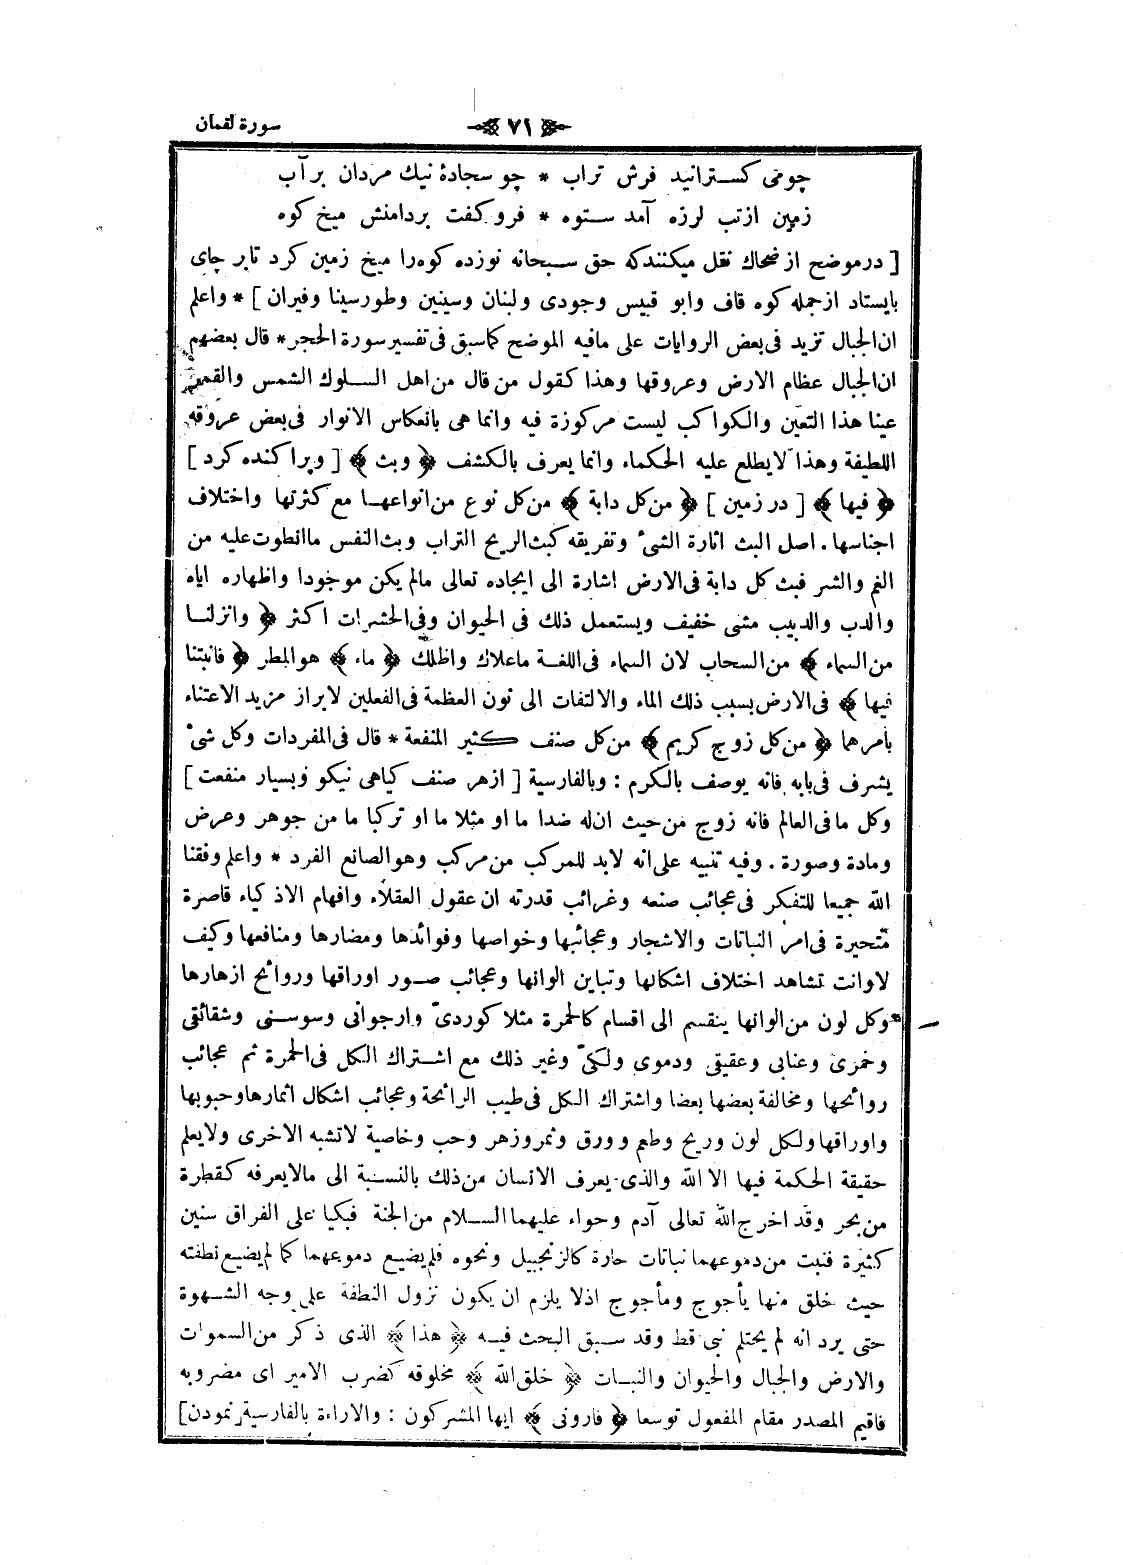 سورة لقمان
٧١
چو می کسترانید فرش تراب * چو سجادهٔ نیك مردان بر آب
زمین از تب لرزه آمد ستوه * فرو کفت بردامنش میخ کوه
[ درموضح از ضحاك نقل میکنندکه حق سبحانه نوزده کوه را میخ زمین کرد تابر جای
بایستاد ازجمله کوه قاف وابو قبیس وجودی ولبنان وسینین وطور سینا وفیران ] * واعلم
ان الجبال تزید فی بعض الروایات علی مافیه الموضح کماسبق فی تفسیر سورة الحجر * قال بعضهم
ان الجبال عظام الارض وعروقها وهذا کقول من قال من اهل السلوك الشمس والقمر
عینا هذا التعین والکواکب لیست مرکوزة فیه وانما هی بانعکاس الانوار فی بعض عروقه
اللطیفة وهذا لایطلع علیه الحکماء وانما یعرف بالکشف ﴿ وبث ﴾ [ وپراکنده کرد ]
﴿ فیها ﴾ [ در زمین ] ﴿ من کل دابة ﴾ من کل نوع من انواعهـا مع کثرتها واختلاف
اجناسها . اصل البث اثارة الشیٔ وتفریقه کبث الریح التراب وبث النفس ماانطوت علیه من
الغم والشر فبث کل دابة فی الارض اشارة الی ایجاده تعالی مالم یکن موجودا واظهاره ایاه
والدب والدبیب مشی خفیف ویستعمل ذلك فی الحیوان وفی الحشرات اکثر ﴿ وانزلنـا
من السماء ﴾ من السحاب لان السماء فی اللغـة ماعلاك واظلك ﴿ ماء ﴾ هو المطر ﴿ فانبتنا
فیها ﴾ فی الارض بسبب ذلك الماء والالتفات الی نون العظمة فی الفعلین لابراز مزید الاعتناء
بأمرهما ﴿ من کل زوج کریم ﴾ من کل صنف کثیر المنفعة * قال فی المفردات وکل شیٔ
یشرف فی بابه فانه یوصف بالکرم : وبالفارسیة [ ازهر صنف کیاهی نیکو وبسیار منفعت ]
وکل ما فی العالم فانه زوج من حیث ان له ضدا ما او مثلا ما او ترکبا ما من جوهر وعرض
ومادة وصورة . وفیه تنبیه علی انه لابد للمرکب من مرکب وهو الصانع الفرد * واعلم وفقنا
الله جمیعا للتفکر فی عجائب صنعه وغرائب قدرته ان عقول العقلاء وافهام الاذکیاء قاصرة
متحیرة فی امر النباتات والاشجار وعجائبها وخواصها وفوائدها ومضارها ومنافعها وکیف
لاوانت تشاهد اختلاف اشکالها وتباین الوانها وعجائب صـور اوراقها وروائح ازهارها
وکل لون من الوانها ینقسم الی اقسام کالحمرة مثلا کوردیّ وارجوانی وسوسنی وشقائقی
وخمری وعنابی وعقیقی ودموی ولکیّ وغیر ذلك مع اشـتراك الکل فی الحمرة ثم عجائب
روائحها ومخالفة بعضها بعضا واشتراك الکل فی طیب الرائحة وعجائب اشکال اثمارها وحبوبها
واوراقها ولکل لون وریح وطعم وورق وثمر وزهر وحب وخاصیة لاتشبه الاخری ولایعلم
حقیقة الحکمة فیها الا الله والذی یعرف الانسان من ذلك بالنسـبة الی مالایعرفه کقطرة
من بحر وقد اخرج الله تعالی آدم وحواء علیهما السلام من الجنة فبکیا علی الفراق سنین
کثیرة فنبت من دموعهما نباتات حارة کالزنجبیل ونحوه فلم یضیـع دموعهما کما لم یضیع نطفته
حیث خلق منها یأجوج ومأجوج اذلا یلزم ان یکون نزول النطفة علی وجه الشـهوة
حتی یرد انه لم یحتلم نبی قط وقد سـبق البحث فیـه ﴿ هذا ﴾ الذی ذکر من السموات
والارض والجبال والحیوان والنبـات ﴿ خلق الله ﴾ مخلوقه کضرب الامیر ای مضروبه
فاقیم المصدر مقام المفعول توسعا ﴿ فارونی ﴾ ایها المشرکون : والاراءة بالفارسیة [نمودن]